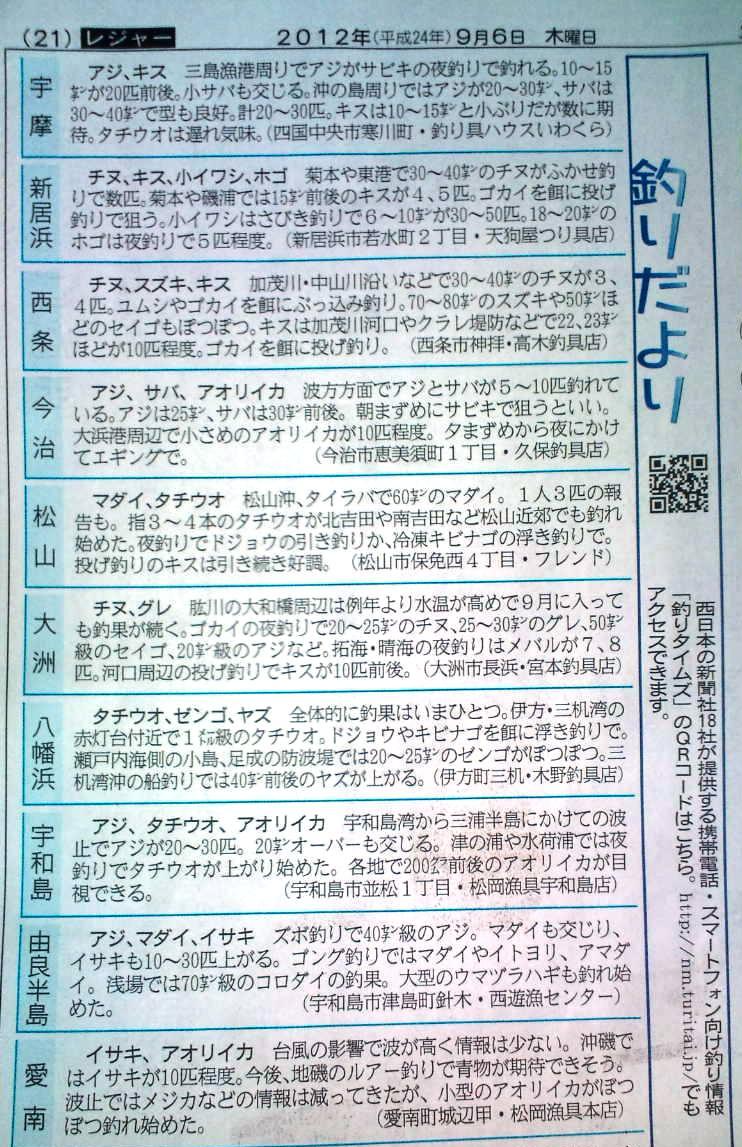 (21) レジャー 2012年(平成24年)9月6日 木曜日
釣りだより
宇摩
アジ、キス 三島漁港周りでアジがサビキの夜釣りで釣れる。10〜15
㌢が20匹前後。小サバも交じる。沖の島周りではアジが20〜30㌢、サバは
30〜40㌢で型も良好。計20〜30匹。キスは10〜15㌢と小ぶりだが数に期
待。タチウオは遅れ気味。(四国中央市寒川町・釣り具ハウスいわくら)
新居浜
チヌ、キス、小イワシ、ホゴ 菊本や東港で30〜40㌢のチヌがふかせ釣
りで数匹。菊本や磯浦では15㌢前後のキスが4、5匹。ゴカイを餌に投げ
釣りで狙う。小イワシはさびき釣りで6〜10㌢が30〜50匹。18〜20㌢の
ホゴは夜釣りで5匹程度。(新居浜市若水町2丁目・天狗屋つり具店)
西条
チヌ、スズキ、キス 加茂川・中山川沿いなどで30〜40㌢のチヌが3、
4匹。ユムシやゴカイを餌にぶっ込み釣り。70〜80㌢のスズキや50㌢ほ
どのセイゴもぽつぽつ。キスは加茂川河口やクラレ堤防などで22、23㌢
ほどが10匹程度。ゴカイを餌に投げ釣り。(西条市神拝・高木釣具店)
今治
アジ、サバ、アオリイカ 波方方面でアジとサバが5〜10匹釣れて
いる。アジは25㌢、サバは30㌢前後。朝まずめにサビキで狙うといい。
大浜港周辺で小さめのアオリイカが10匹程度。夕まずめから夜にかけ
てエギングで。(今治市恵美須町1丁目・久保釣具店)
松山
マダイ、タチウオ 松山沖、タイラバで60㌢のマダイ。1人3匹の報
告も。指3〜4本のタチウオが北吉田や南吉田など松山近郊でも釣れ
始めた。夜釣りでドジョウの引き釣りか、冷凍キビナゴの浮き釣りで。
投げ釣りのキスは引き続き好調。(松山市保免西4丁目・フレンド)
大洲
チヌ、グレ 肱川の大和橋周辺は例年より水温が高めで9月に入って
も釣果が続く。ゴカイの夜釣りで20〜25㌢のチヌ、25〜30㌢のグレ、50㌢
級のセイゴ、20㌢級のアジなど。拓海・晴海の夜釣りはメバルが7、8
匹。河口周辺の投げ釣りでキスが10匹前後。(大洲市長浜・宮本釣具店)
八幡浜
タチウオ、ゼンゴ、ヤズ 全体的に釣果はいまひとつ。伊方・三机湾の
赤灯台付近で1㍍級のタチウオ。ドジョウやキビナゴを餌に浮き釣りで。
瀬戸内海側の小島、足成の防波堤では20〜25㌢のゼンゴがぽつぽつ。三
机湾沖の船釣りでは40㌢前後のヤズが上がる。(伊方町三机・木野釣具店)
宇和島
アジ、タチウオ、アオリイカ 宇和島湾から三浦半島にかけての波
止でアジが20〜30匹。20㌢オーバーも交じる。津の浦や水荷浦では夜
釣りでタチウオが上がり始めた。各地で200㌘前後のアオリイカが目
視できる。(宇和島市並松1丁目・松岡漁具宇和島店)
由良半島
アジ、マダイ、イサキ ズボ釣りで40㌢級のアジ。マダイも交じり、
イサキも10〜30匹上がる。ゴング釣りではマダイやイトヨリ、アマダ
イ。浅場では70㌢級のコロダイの釣果。大型のウマヅラハギも釣れ始
めた。(宇和島市津島町針木・西遊漁センター)
愛南
イサキ、アオリイカ 台風の影響で波が高く情報は少ない。沖磯で
はイサキが10匹程度。今後、地磯のルアー釣りで青物が期待できそう。
波止ではメジカなどの情報は減ってきたが、小型のアオリイカがぽつ
ぽつ釣れ始めた。(愛南町城辺甲・松岡漁具本店)
西日本の新聞社18社が提供する携帯電話・スマートフォン向け釣り情報
「釣りタイムズ」のQRコードはこちら。http://nm.turitai.jp/でも
アクセスできます。